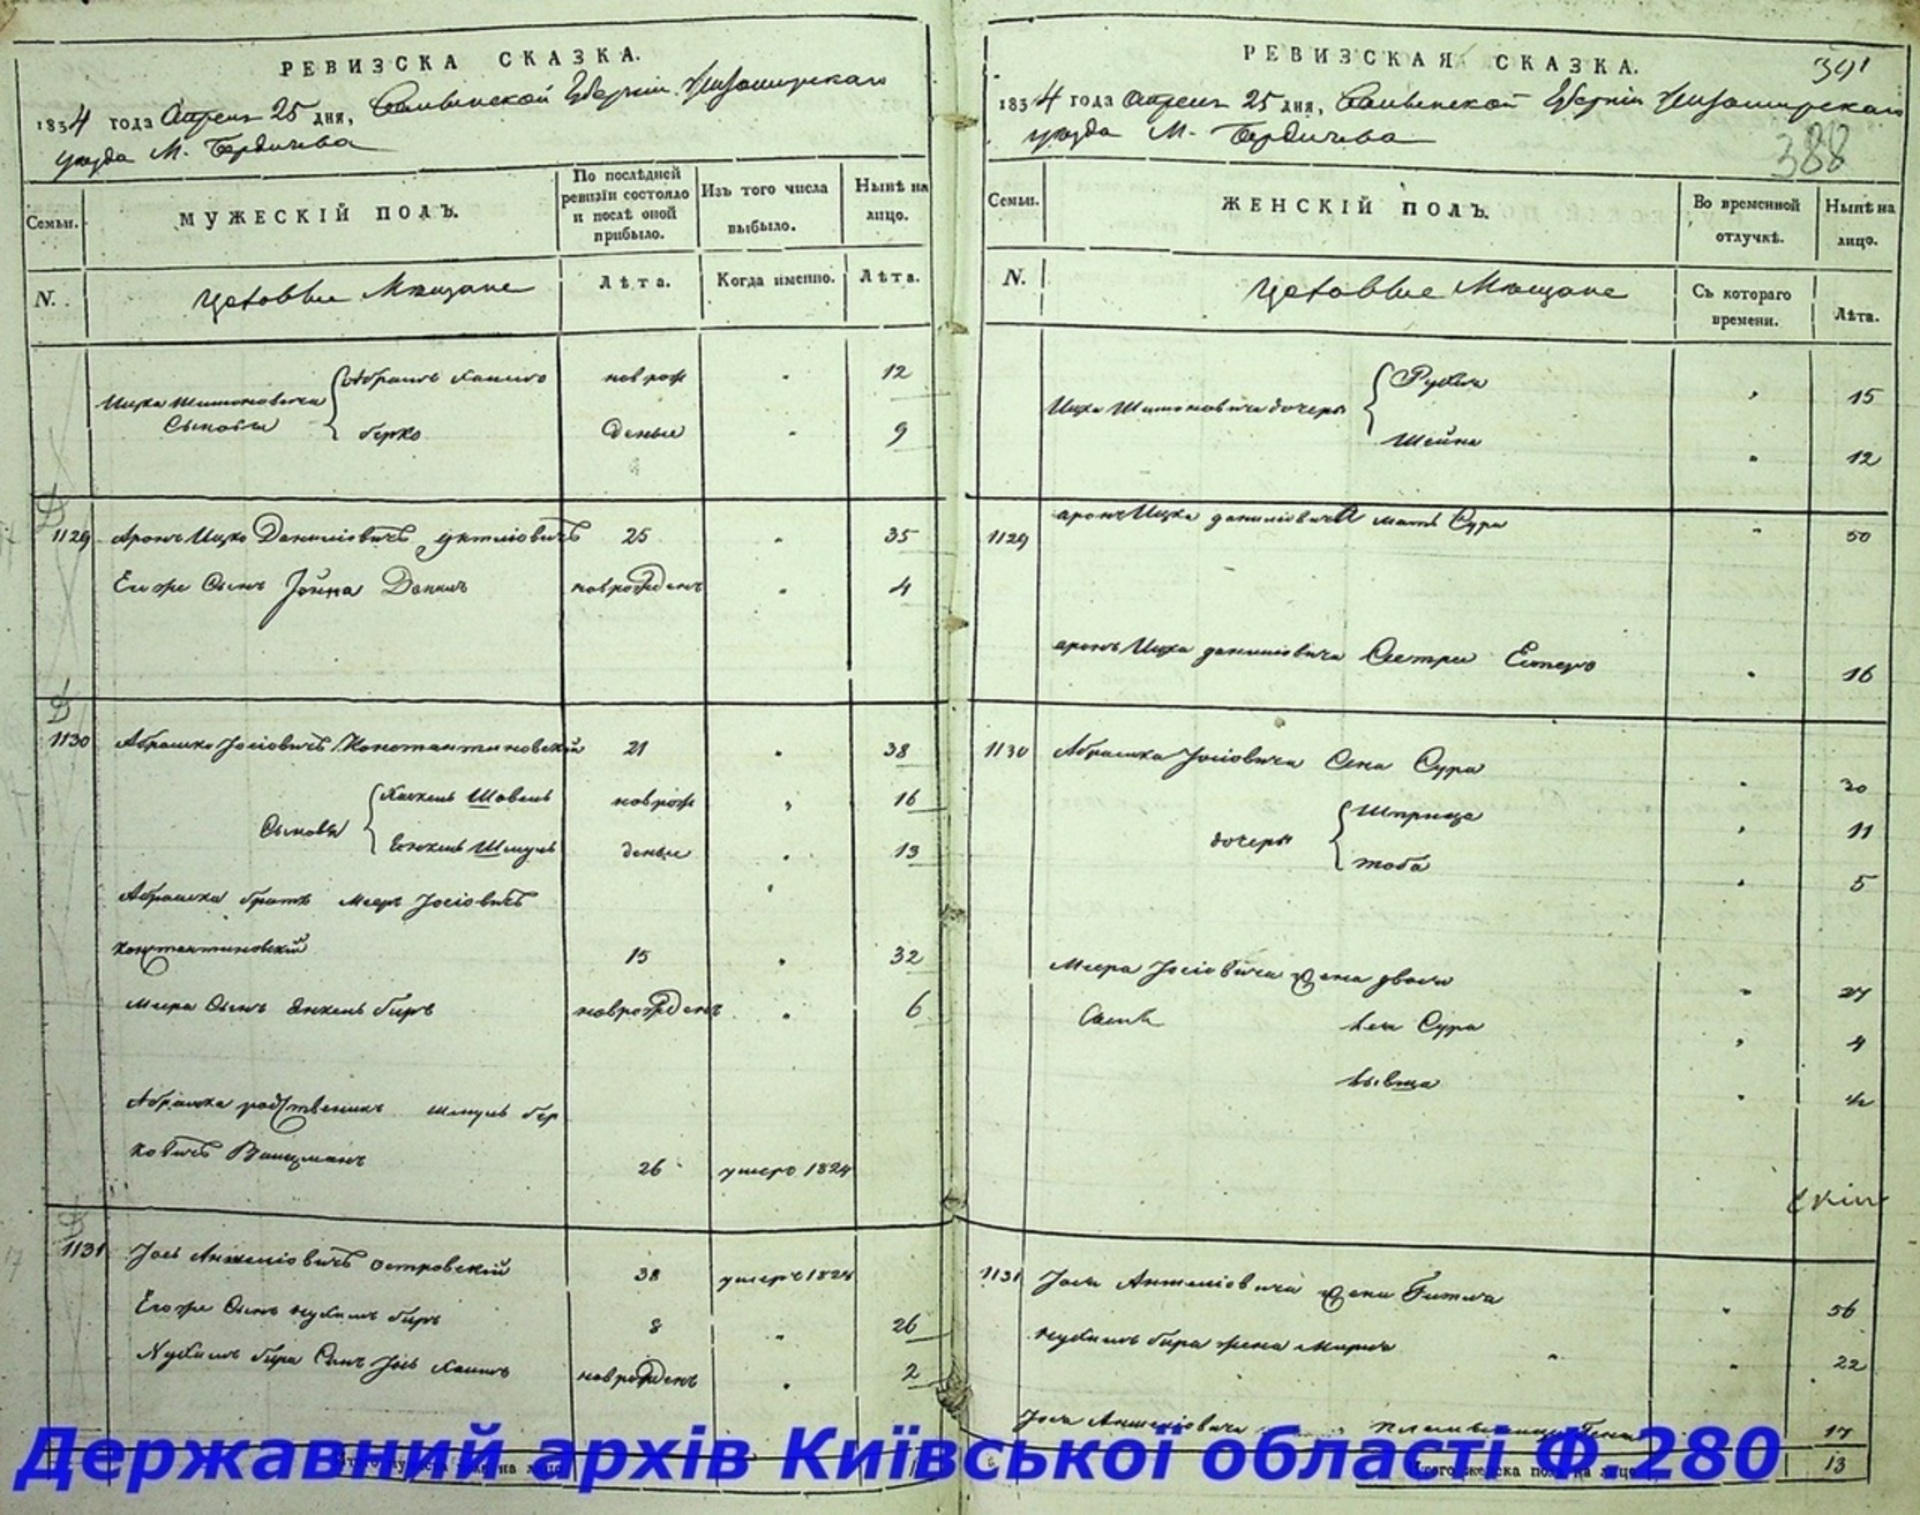 РЕВИЗСКА СКАЗКА.
1834 года Апреля 25 дня, Волынской Губернии Житомирскаго
уезда М. Бердичева
Семьи.
МУЖЕСКІЙ ПОЛЪ.
По послѣдней
ревизіи состояло
и послѣ оной
прибыло.
Изъ того числа
выбыло.
Нынѣ на
лицо.
N.
Цеховые Мещане
Лѣта.
Когда именно.
Лѣта.
Ицка Шимоновича
Сыновья
Абрамъ Хаимъ
новрож
12
Берко
деные
9
1129
Аронъ Ицко Даниловичъ
25
35
Его же Сынъ Іойна Данил
новрожденъ
4
1130
Абрашко Іосіовичъ Константиновскій
21
38
Сыновья
Хаскель Шовель
новрож
16
Шмуль
деные
13
Абрашка братъ Меер Іосіовичъ
Константиновскій
15
32
Меера Сынъ Янкель Беръ
новрожденъ
6
Абрашка родственикъ Шмуль Бер
ковичъ Вайцманъ
26
умеръ 1824
1131
Іось Аншеліовичъ Островскій
38
умеръ 1828
Его же Сынъ Нухимъ Беръ
8
26
Нухимъ Бера Сынъ Іось Хаимъ
новрожденъ
2
РЕВИЗСКАЯ СКАЗКА.
391
1834 года Апреля 25 дня, Волынской Губерніи Житомирскаго
уезда М. Бердичева
388
Семьи.
ЖЕНСКІЙ ПОЛЪ.
Во временной
отлучкѣ.
Нынѣ на
лицо.
N.
Цеховые Мещане
Съ котораго
времени.
Лѣта.
Ицка Шимоновича дочеры
Рухля
15
Шейна
12
1129
Аронъ Ицка Даниловича мать Сура
50
Аронъ Ицка Даниловича Сестра Естера
16
1130
Абрашка Іосіовича жена Сура
30
дочеры
Штринца
11
тоба
5
Меера Іосіовича жена двося
27
Сура
4
1131
Іося Аншеліовича жена Гитля
56
Нухимъ Бера жена Мирля
22
Іося Аншеліовича
17
на лицо
Итого женска пола на лицо
13
Державний архів Київської області Ф.280